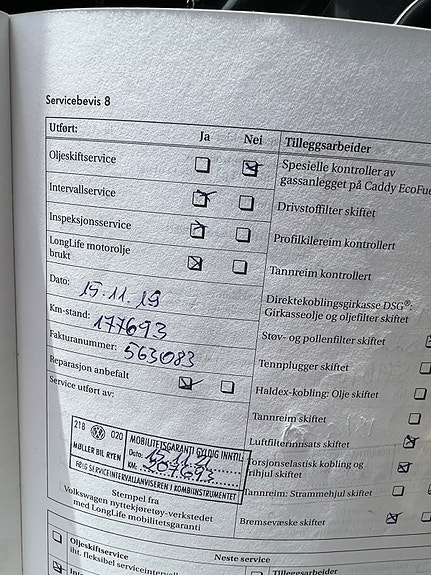 Servicebevis 8
Utført: Ja Nei Tilleggsarbeider
Oljeskiftservice
Intervallservice
Inspeksjonsservice
LongLife motorolje
brukt
Dato: 15.11.19
Km-stand: 177693
Fakturanummer: 563083
Reparasjon anbefalt
Service utført av:
218 020
MØLLER BIL RYEN
MOBILITETSGARANTI GYLDIG INNTIL
Dato: 15.11.21
KM: 207693
FØLG SERVICEINTERVALLANVISEREN I KOMBIINSTRUMENTET
Stempel fra
Volkswagen nyttekjøretøy-verkstedet
med LongLife mobilitetsgaranti
Spesielle kontroller av
gassanlegget på Caddy EcoFue
Drivstoffilter skiftet
Profilkilereim kontrollert
Tannreim kontrollert
Direktekoblingsgirkasse DSG®:
Girkasseolje og oljefilter skiftet
Støv- og pollenfilter skiftet
Tennplugger skiftet
Haldex-kobling: Olje skiftet
Tannreim skiftet
Luftfilterinnsats skiftet
Torsjonselastisk kobling og
rihjul skiftet
Tannreim: Strammehjul skiftet
Bremsevæske skiftet
Neste service
Oljeskiftservice
iht. fleksibel serviceinterv
Tilleggsarbeider